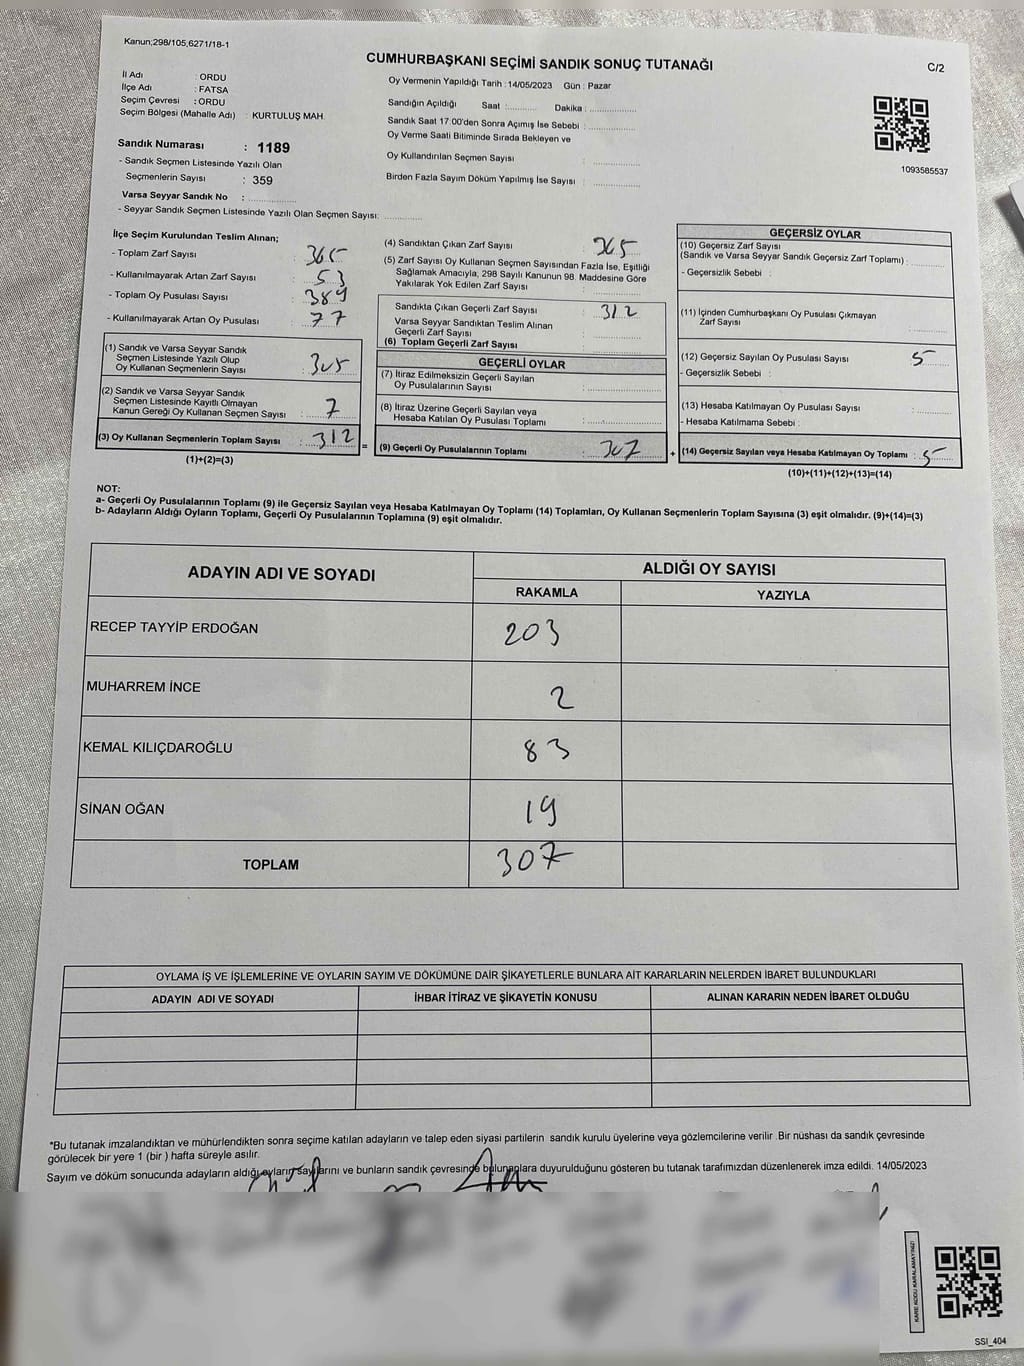 Kanun;298/105,6271/18-1
CUMHURBAŞKANI SEÇİMİ SANDIK SONUÇ TUTANAĞI
C/2
İl Adı : ORDU
İlçe Adı : FATSA
Seçim Çevresi : ORDU
Seçim Bölgesi (Mahalle Adı) : KURTULUŞ MAH.
Oy Vermenin Yapıldığı Tarih : 14/05/2023 Gün : Pazar
Sandığın Açıldığı Saat :.......... Dakika :..................
Sandık Saat 17.00'den Sonra Açımış İse Sebebi :..................
Oy Verme Saati Bitiminde Sırada Bekleyen ve
Oy Kullandırılan Seçmen Sayısı :..................
Birden Fazla Sayım Döküm Yapılmış İse Sayısı :..................
1093585537
Sandık Numarası : 1189
- Sandık Seçmen Listesinde Yazılı Olan
Seçmenlerin Sayısı : 359
Varsa Seyyar Sandık No :..................
- Seyyar Sandık Seçmen Listesinde Yazılı Olan Seçmen Sayısı: ..............
İlçe Seçim Kurulundan Teslim Alınan;
- Toplam Zarf Sayısı : 365
- Kullanılmayarak Artan Zarf Sayısı : 53
- Toplam Oy Pusulası Sayısı : 389
- Kullanılmayarak Artan Oy Pusulası : 77
(1) Sandık ve Varsa Seyyar Sandık
Seçmen Listesinde Yazılı Olup
Oy Kullanan Seçmenlerin Sayısı : 305
(2) Sandık ve Varsa Seyyar Sandık
Seçmen Listesinde Kayıtlı Olmayan
Kanun Gereği Oy Kullanan Seçmen Sayısı : 7
(3) Oy Kullanan Seçmenlerin Toplam Sayısı : 312 =
(1)+(2)=(3)
(4) Sandıktan Çıkan Zarf Sayısı 365
(5) Zarf Sayısı Oy Kullanan Seçmen Sayısından Fazla İse, Eşitliği
Sağlamak Amacıyla, 298 Sayılı Kanunun 98. Maddesine Göre
Yakılarak Yok Edilen Zarf Sayısı :..................
Sandıkta Çıkan Geçerli Zarf Sayısı : 312
Varsa Seyyar Sandıktan Teslim Alınan
Geçerli Zarf Sayısı :..................
(6) Toplam Geçerli Zarf Sayısı :..................
GEÇERLİ OYLAR
(7) İtiraz Edilmeksizin Geçerli Sayılan
Oy Pusulalarının Sayısı :..................
(8) İtiraz Üzerine Geçerli Sayılan veya
Hesaba Katılan Oy Pusulaları Toplamı :..................
(9) Geçerli Oy Pusulalarının Toplamı : 307 +
GEÇERSİZ OYLAR
(10) Geçersiz Zarf Sayısı
(Sandık ve Varsa Seyyar Sandık Geçersiz Zarf Toplamı) :............
- Geçersizlik Sebebi :
(11) İçinden Cumhurbaşkanı Oy Pusulası Çıkmayan
Zarf Sayısı :............
(12) Geçersiz Sayılan Oy Pusulası Sayısı : 5
- Geçersizlik Sebebi :
(13) Hesaba Katılmayan Oy Pusulası Sayısı :............
- Hesaba Katılmama Sebebi :
(14) Geçersiz Sayılan veya Hesaba Katılmayan Oy Toplamı : 5
(10)+(11)+(12)+(13)=(14)
NOT:
a- Geçerli Oy Pusulalarının Toplamı (9) ile Geçersiz Sayılan veya Hesaba Katılmayan Oy Toplamı (14) Toplamları, Oy Kullanan Seçmenlerin Toplam Sayısına (3) eşit olmalıdır. (9)+(14)=(3)
b- Adayların Aldığı Oyların Toplamı, Geçerli Oy Pusulalarının Toplamına (9) eşit olmalıdır.
ADAYIN ADI VE SOYADI ALDIĞI OY SAYISI
RAKAMLA YAZIYLA
RECEP TAYYİP ERDOĞAN 203
MUHARREM İNCE 2
KEMAL KILIÇDAROĞLU 83
SİNAN OĞAN 19
TOPLAM 307
OYLAMA İŞ VE İŞLEMLERİNE VE OYLARIN SAYIM VE DÖKÜMÜNE DAİR ŞİKAYETLERLE BUNLARA AİT KARARLARIN NELERDEN İBARET BULUNDUKLARI
ADAYIN ADI VE SOYADI İHBAR İTİRAZ VE ŞİKAYETİN KONUSU ALINAN KARARIN NEDEN İBARET OLDUĞU
*Bu tutanak imzalandıktan ve mühürlendikten sonra seçime katılan adayların ve talep eden siyasi partilerin sandık kurulu üyelerine veya gözlemcilerine verilir .Bir nüshası da sandık çevresinde
görülecek bir yere 1 (bir ) hafta süreyle asılır.
Sayım ve döküm sonucunda adayların aldığı oyların sayılarını ve bunların sandık çevresinde bulunanlara duyurulduğunu gösteren bu tutanak tarafımızdan düzenlenerek imza edildi. 14/05/2023
KARE KODU KARALAMAYINIZ!
SSI_404